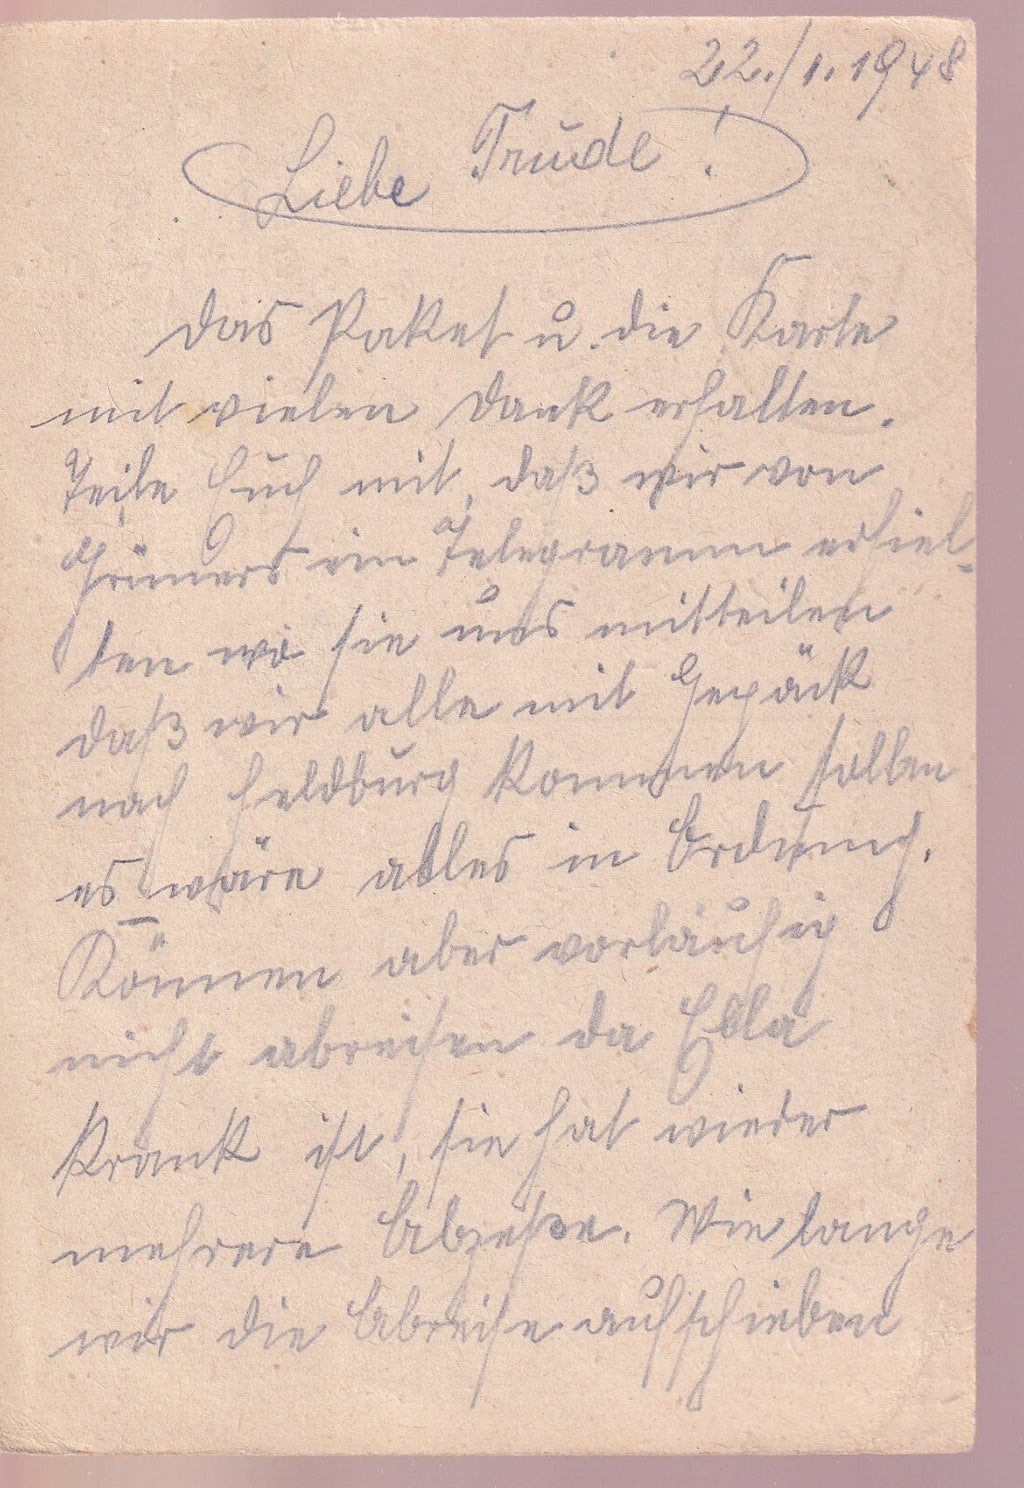 22./1.1948
Liebe Trude!
Das Paket u. die Karte
mit vielen Dank erhalten.
Teile Euch mit, daß wir von
ein Telegramm erhiel-
ten wo sie uns mitteilen
daß wir alle mit Gepäck
nach Feldburg kommen sollen
es wäre alles in Ordnung.
Können aber vorläufig
nicht abreisen da Ella
krank ist, sie hat wieder
mehrere Abzeße. Wie lange
wir die Abreise aufschieben